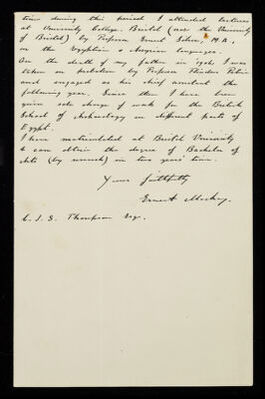 time during this period I attended lectures
at University College, Bristol (now the University
of Bristol) by Professor Ernest Sibree, M.A.,
on the Egyptian & Assyrian languages.
On the death of my father in 1906 I was
taken on probation by Professor Flinders Petrie
and engaged as his chief assistant the
following year. Since then I have been
given sole charge of work for the British
School of Archaeology in different parts of
Egypt.
I have matriculated at Bristol University
& can obtain the degree of Bachelor of
Arts (by research) in two years' time.
Yours faithfully
Ernest Mackay.
C. J. S. Thompson Esq.